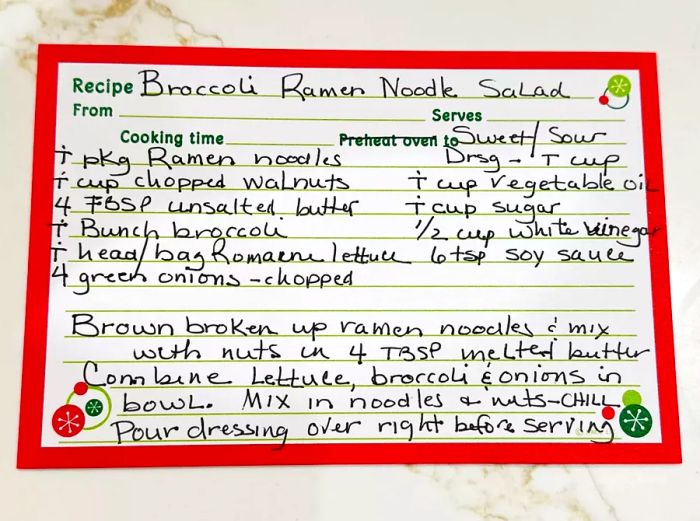 Recipe Broccoli Ramen Noodle Salad
From Serves
Cooking time Preheat oven to Sweet/Sour
1 pkg Ramen noodles Drsg - 1 cup
1 cup chopped walnuts 1 cup vegetable oil
4 TBSP unsalted butter 1 cup sugar
1 Bunch broccoli 1/2 cup white vinegar
1 head/bag Romaene lettuce 6 tsp soy sauce
4 green onions - chopped
Brown broken up ramen noodles & mix
with nuts in 4 TBSP melted butter
Combine Lettuce, broccoli & onions in
bowl. Mix in noodles & nuts - CHILL
Pour dressing over right before serving